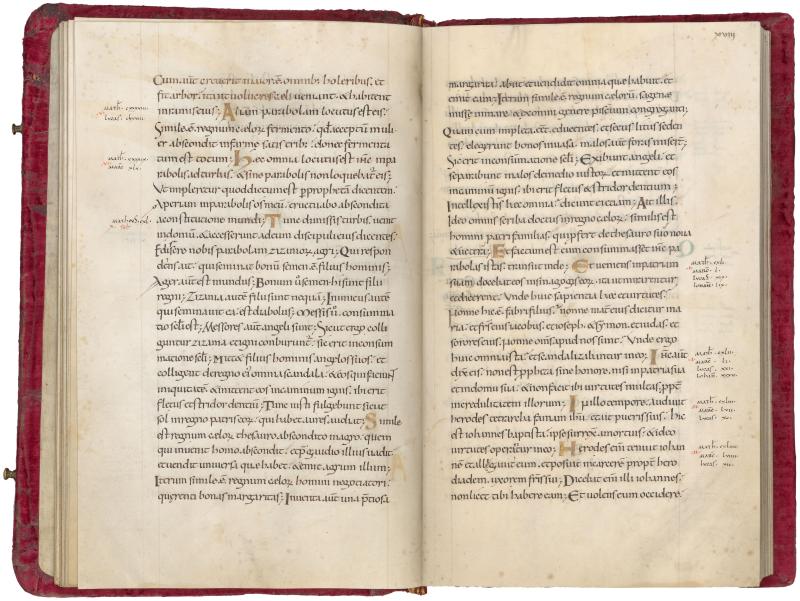 Cum aut̄ creverit maius ē omnib; holeribus, et
fit arbor, ita ut volucres caeli veniant, & habitent
in ramis eius; Aliam parabolam locutus est eis;
Simile ē regnum caeloꝝ fermento, qđ acceptū muli
er abscondit in farinę satis trib; donec fermenta
tum est totum; Hęc omnia locutus est ihc̄ in pa
rabolis, ad turbas, & sine parabolis non loquebat̄ eis;
Ut impleretur quod dictum est p̱ prophetā dicentem.
Aperiam in parabolis os meū, eructabo abscondita
a constitutione mundi; Tunc dimissis turbis, venit
in domū, & accesserunt ad eum discipuli eius dicentes.
Edissere nobis parabolam zizanioꝝ agri; Qui respon
dens ait, qui seminat bonū semen ē filius hominis;
Ager aut̄ est mundus; Bonum v̄ semen hi sunt filii
regni; Zizania aut̄ filii sunt nequā; Inimicus aut̄
qui seminavit ea, est diabolus; Messis v̄, consumma
tio sęli est; Messores aut̄ angeli sunt; Sicut ergo colli
guntur zizania et igni conburunt̄, sic erit in consum
matione sęli; Mittet filius hominis angelos suos, et
colligent de regno ei' omnia scandala, & eos qui faciunt
iniquitatē, & mittent eos in caminum ignis, ibi erit
fletus et stridor dentiū; Tunc iusti fulgebunt sicut
sol in regno patris eoꝝ, qui habet aures, audiat; Simile
est regnum caeloꝝ thesauro abscondito in agro, quem
qui invenit homo, abscondit, et p̱ gaudio illius vadit
et vendit universa quae habet, & emit agrum illum;
Iterum simile ē regnum caeloꝝ homini negotiatori
querenti bonas margaritas; Inventa aut̄ una p̄tiosa
xviii
margarita, abiit et vendidit omnia quae habuit, et
emit eam; Iterum simile ē regnum caeloꝝ, sagenae
missae in mare, & ex omni genere piscium congreganti;
Quam cum impleta eēt, educentes, et secus litus seden
tes, elegerunt bonos in vasa, malos aut̄ foras miserꝉ;
Sic erit in consummatione sęli; Exibunt angeli, et
separabunt malos de medio iustoꝝ, et mittent eos
in caminū ignis, ibi erit fletus et stridor dentium;
Intellexistis hęc omnia; dicunt ei etiam; Ait illis,
Ideo omnis scriba doctus in regno caeloꝝ, similis est
homini patrifamilias, qui p̱fert de thesauro suo nova
& vetera; Et factum est cum consummasset ihc̄ pa
rabolas istas, transiit inde; Et veniens in patriam
suam, docebat eos in sinagogis eoꝝ, ita ut mirarentur
et dicerent; Unde huic sapientia haec et virtutes;
Nonne hic ē fabri filius; nonne mater eius dicitur ma
ria, et fr̄s eius iacobus, et ioseph, & symon, et iudas, et
sorores eius, nonne om̄s apud nos sunt; Unde ergo
huic omnia ista; et scandalizabantur in eo; Ihc̄ aut̄
dix̄ eis; non est p̱pheta sine honore, nisi in patria sua
et in domo sua, & non fecit ibi virtutes multas, p̱pt̄
incredulitatem illorum; In illo tempore, audivit
herodes tetrarcha famam ih̄u, et ait pueris suis; hic
est iohannes baptista, ipse surrexit a mortuis, & ideo
virtutes operant̄ur in eo; Herodes enī tenuit iohan
nē et alligavit eum, et posuit in carcere propt̄ hero
diadem, uxorem fr̄is sui; Dicebat enī illi iohannes,
non licet tibi habere eam; Et volens eum occidere,